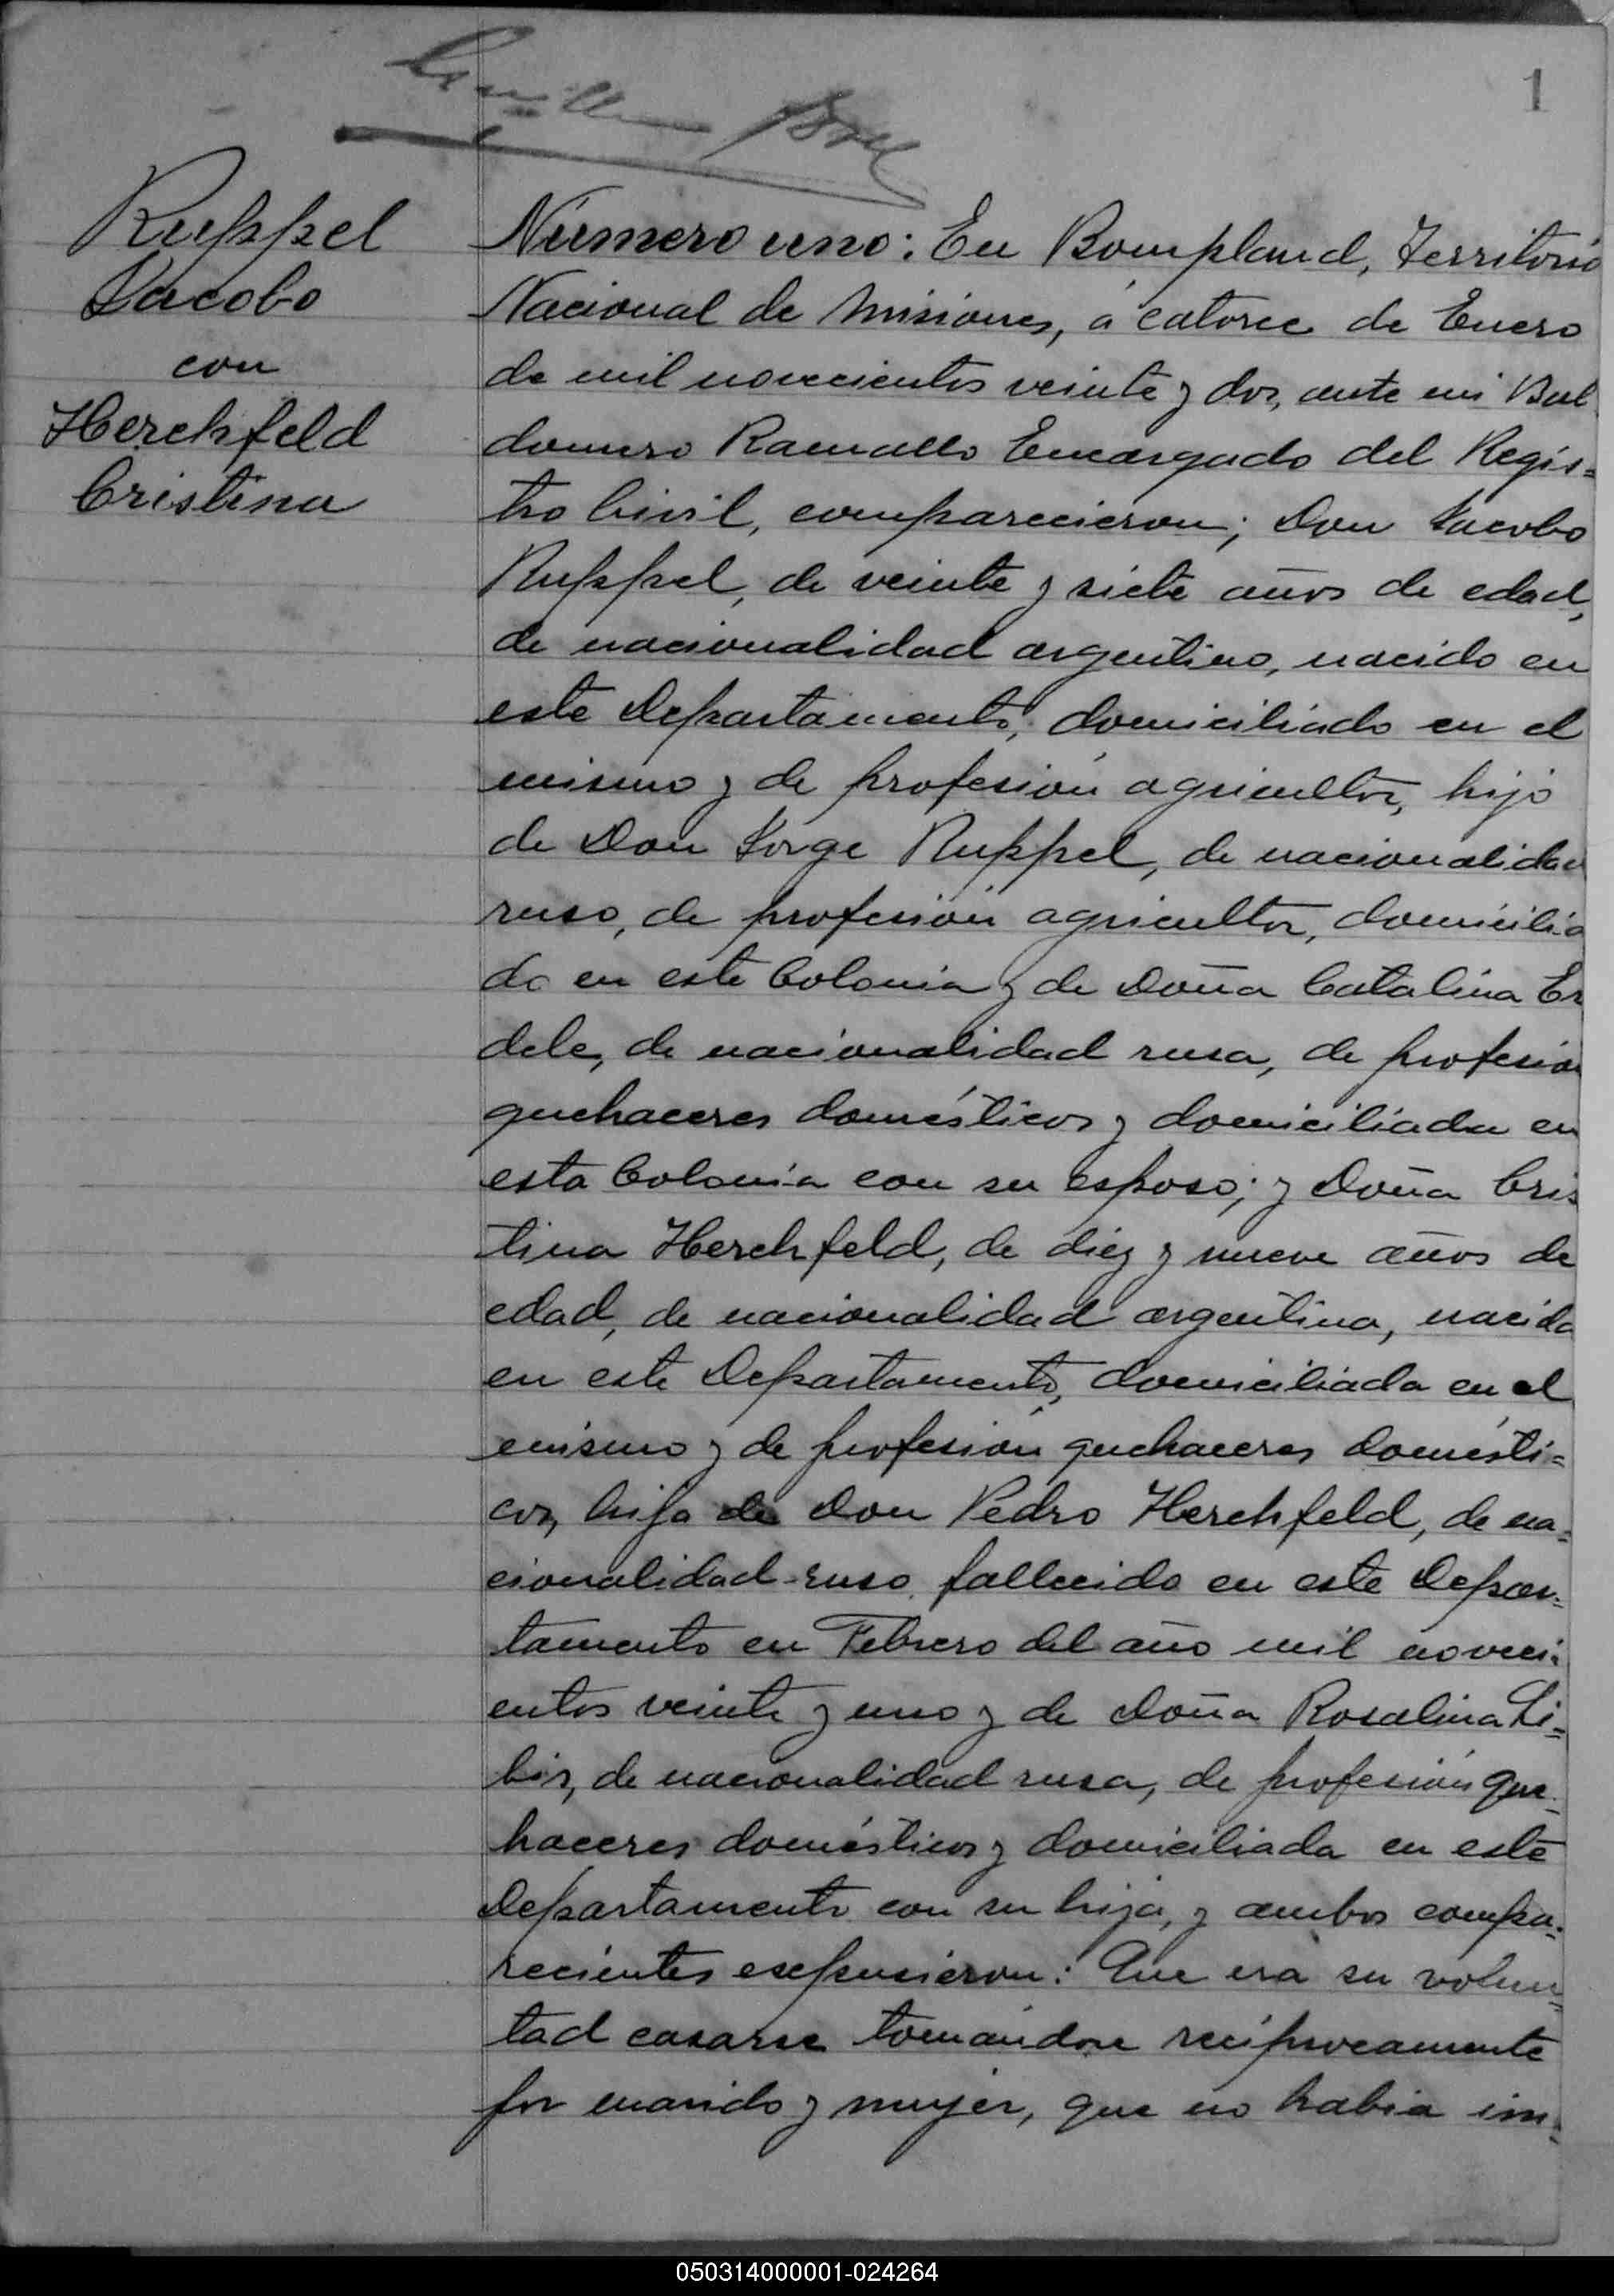 1
Ruppel
Jacobo
con
Herchfeld
Cristina
Número uno: En Bompland, Territorio
Nacional de Misiones, á catorce de Enero
de mil novecientos veinte y dos, ante mi Bal
domero Ramallo Encargado del Regis=
tro Civil, comparecieron; Don Jacobo
Ruppel, de veinte y siete años de edad,
de nacionalidad argentino, nacido en
este Departamento, domiciliado en el
mismo y de profesión agricultor, hijo
de Don Jorge Ruppel, de nacionalidad
ruso, de profesión agricultor, domicilia
do en este Colonia y de Doña Catalina Er
dele, de nacionalidad rusa, de profesión
quehaceres domésticos y domiciliada en
esta Colonia con su esposo; y Doña Cris
tina Herchfeld, de diez y nueve años de
edad, de nacionalidad argentina, nacida
en este Departamento, domiciliada en el
mismo y de profesión quehaceres domésti=
cos, hija de Don Pedro Herchfeld, de na=
cionalidad ruso, fallecido en este Depar=
tamento en Febrero del año mil noveci=
entos veinte y uno y de Doña Rosalina Li=
bis, de nacionalidad rusa, de profesión que=
haceres domésticos y domiciliada en este
Departamento con su hija, y ambos compa=
recientes expusieron: Que era su volun=
tad casarse tomandose reciprocamente
por marido y mujer, que no habia im=
050314000001-024264